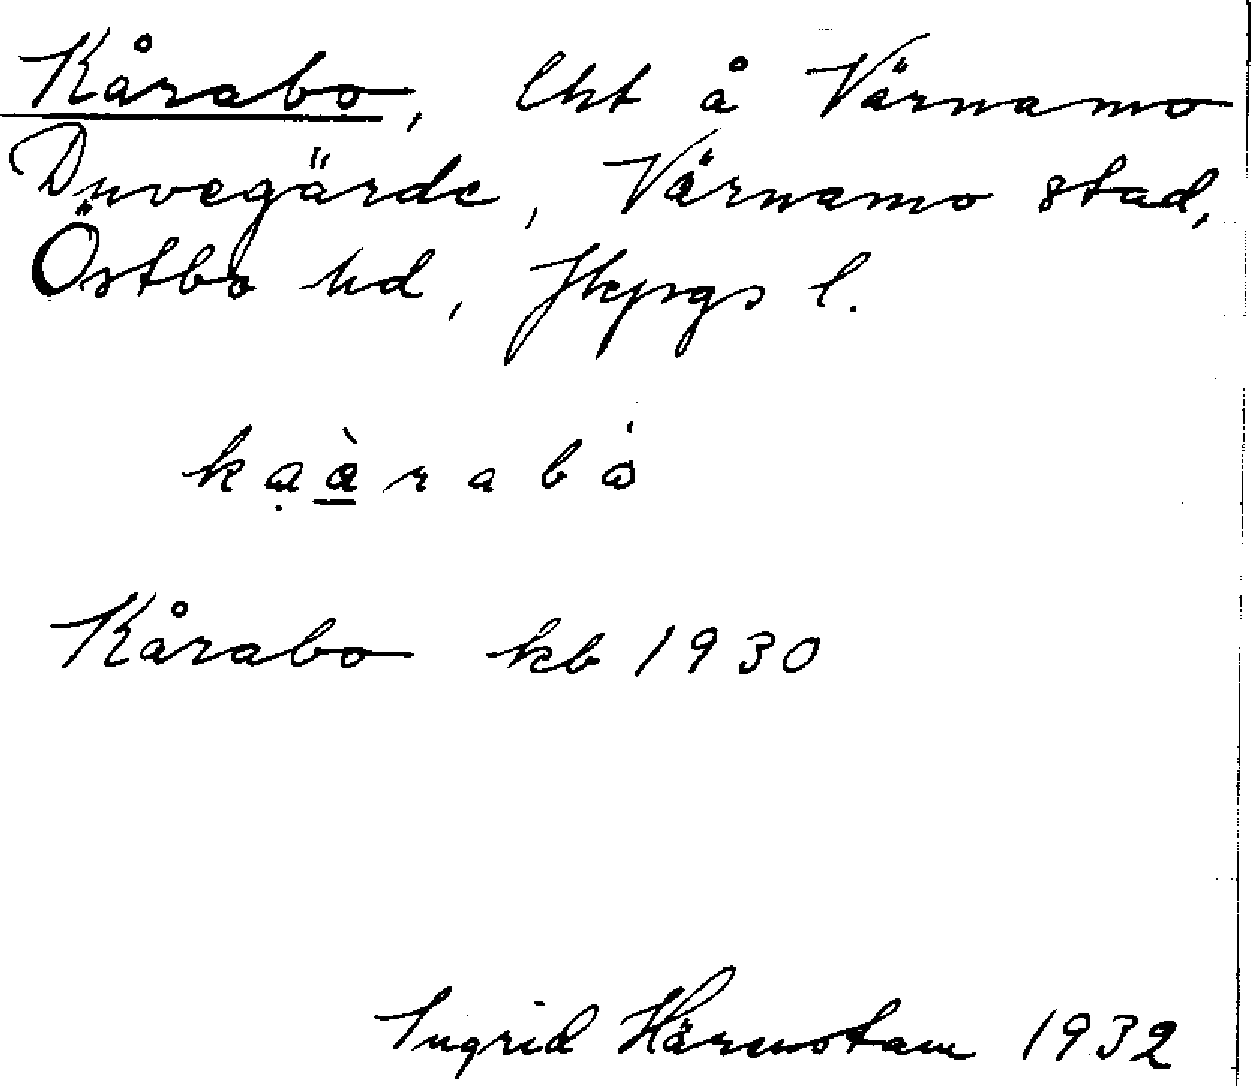 Kårabo, lht å Värnamo
Duvegärde, Värnamo stad,
Östbo hd, Jkpgs l.
kạà̱rabȯ́
Kårabo kb 1930
Ingrid Härenstam 1932